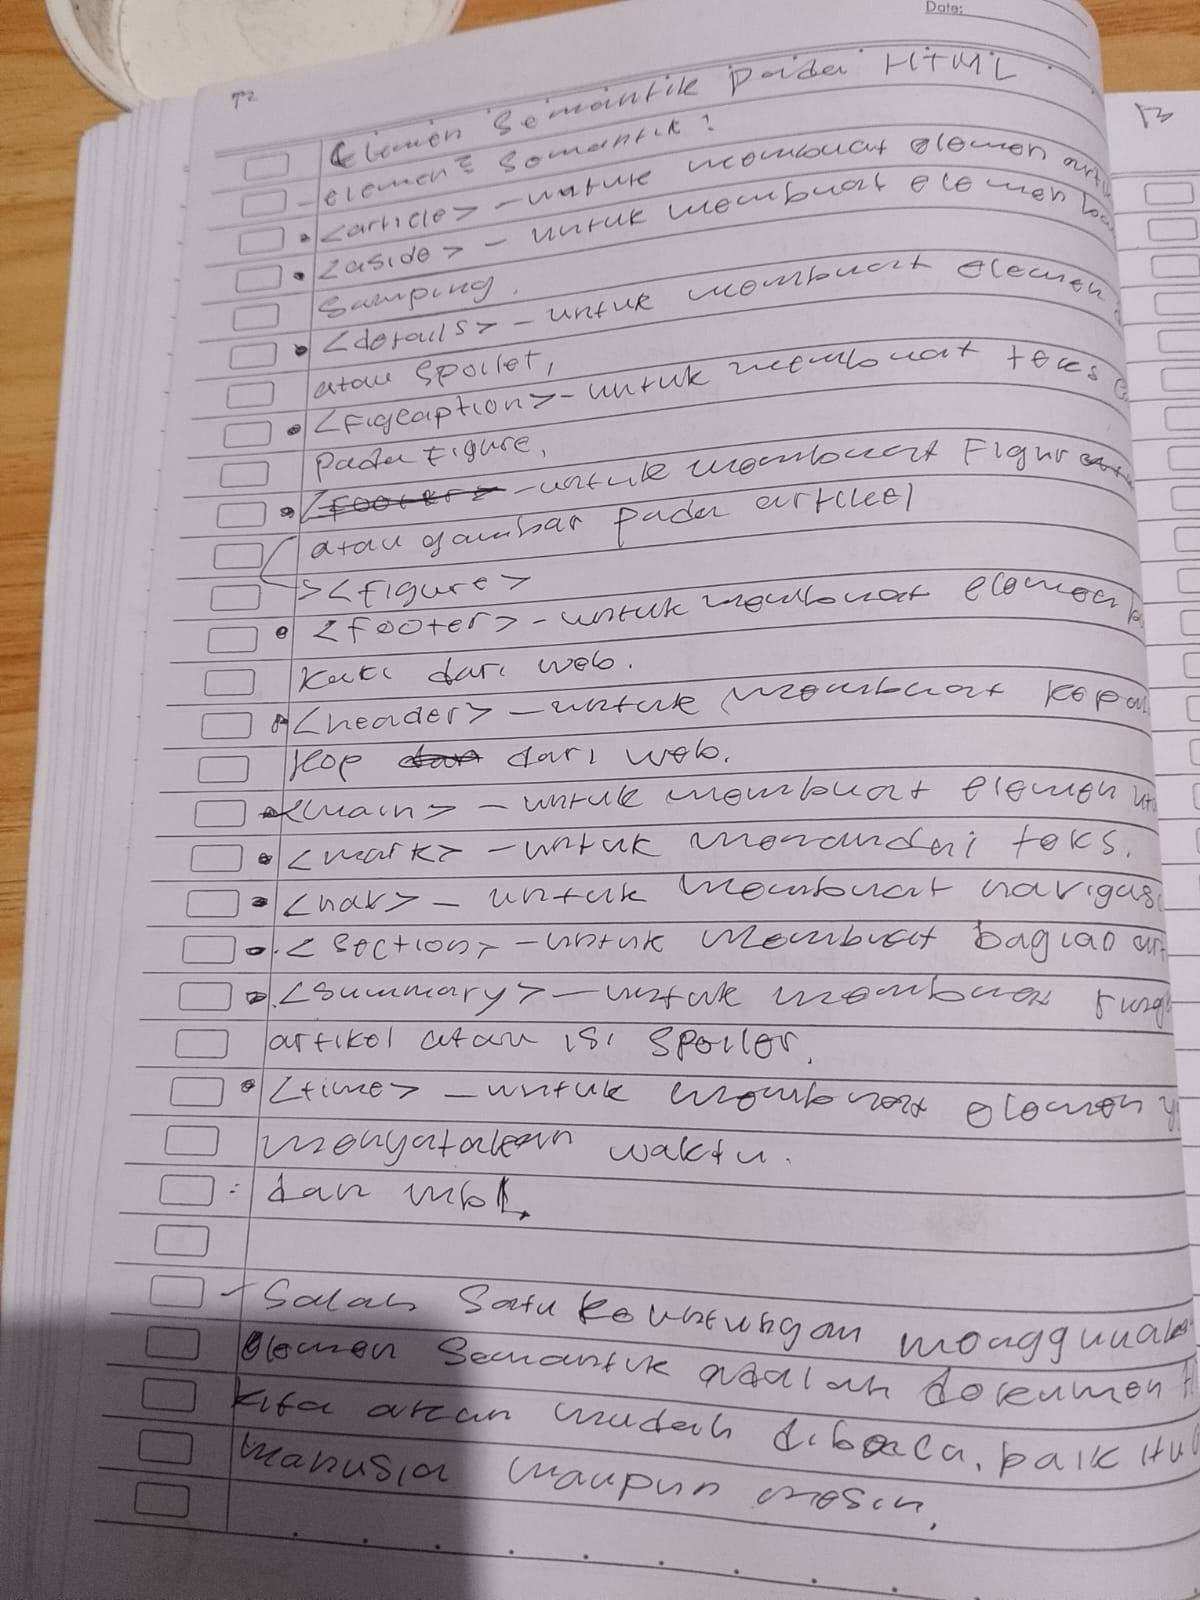 Date:
72
73
Elemen Semantik pada HTML
- elemen2 Semantik:
• <article> - untuk membuat elemen
• <aside> - untuk membuat elemen
Samping.
• <details> - untuk membuat elemen
atau spoiler,
• <figcaption> - untuk membuat teks
pada figure,
• <footer> - untuk membuat Figure
atau gambar pada artikel
><figure>
• <footer> - untuk membuat elemen
kaki dari web.
• <header> - untuk membuat
kop dan dari web.
• <main> - untuk membuat elemen
• <mark> - untuk menandai teks.
• <nav> - untuk membuat
• <section> - untuk membuat bagian
• <summary> - untuk membuat
artikel atau isi spoiler.
• <time> - untuk membuat elemen
menyatakan waktu.
: dan
- Salah satu keuntungan
elemen Semantik adalah dokumen
kita akan mudah dibaca, baik itu
manusia maupun mesin.